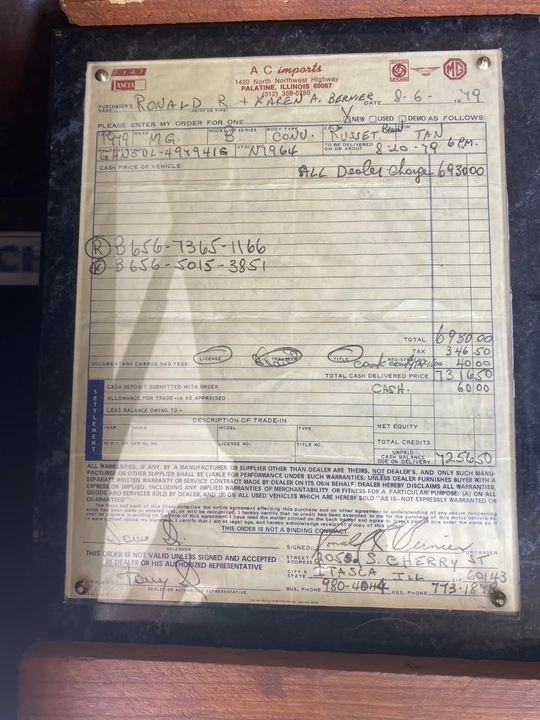 FIAT
LANCIA
A C imports
1420 North Northwest Highway
PALATINE, ILLINOIS 60067
(312) 358-5750
MG
PURCHASER'S NAME RONALD R. + KAREN A. BERNIER DATE 8-6- 1979
PLEASE ENTER MY ORDER FOR ONE X NEW USED DEMO AS FOLLOWS:
1979 MAKE MG MODEL OR SERIES B BODY TYPE CONV. COLOR RUSSET BROWN TAN
GHN5UL-497941G STOCK N7964 TO BE DELIVERED ON OR ABOUT 8-20-79 6 PM.
CASH PRICE OF VEHICLE ALL Dealer Charge 6930 00
(R) B656-7365-1166
(K) B656-5015-3851
TOTAL 6930.00
TAX 346 50
DOCUMENTARY CHARGE AND FEES: LICENSE LIC. TRANSFER TITLE REGISTRATION 40 00
TOTAL CASH DELIVERED PRICE 7316 50
SETTLEMENT
CASH DEPOSIT SUBMITTED WITH ORDER CASH. 60 00
ALLOWANCE FOR TRADE-IN AS APPRAISED
LESS BALANCE OWING TO-
DESCRIPTION OF TRADE-IN NET EQUITY
YEAR MAKE MODEL TYPE
LICENSE NO. TITLE NO. TOTAL CREDITS
UNPAID CASH BALANCE DUE ON DELIVERY 7256 50
ALL WARRANTIES, IF ANY, BY A MANUFACTURER OR SUPPLIER OTHER THAN DEALER ARE THEIRS, NOT DEALER'S, AND ONLY SUCH MANU-
FACTURER OR OTHER SUPPLIER SHALL BE LIABLE FOR PERFORMANCE UNDER SUCH WARRANTIES. UNLESS DEALER FURNISHES BUYER WITH A
SEPARATE WRITTEN WARRANTY OR SERVICE CONTRACT MADE BY DEALER ON ITS OWN BEHALF, DEALER HEREBY DISCLAIMS ALL WARRANTIES,
EXPRESS OR IMPLIED, INCLUDING ANY IMPLIED WARRANTIES OF MERCHANTABILITY OR FITNESS FOR A PARTICULAR PURPOSE: (A) ON ALL
GOODS AND SERVICES SOLD BY DEALER, AND (B) ON ALL USED VEHICLES WHICH ARE HEREBY SOLD "AS IS-NOT EXPRESSLY WARRANTED OR
GUARANTEED"
THIS ORDER IS NOT A BINDING CONTRACT
SALESMAN SIGNED PURCHASER
THIS ORDER IS NOT VALID UNLESS SIGNED AND ACCEPTED
BY DEALER OR HIS AUTHORIZED REPRESENTATIVE
STREET ADDRESS S. CHERRY ST
CITY & STATE ITASCA ILL ZIP 60143
DEALER OR AUTHORIZED REPRESENTATIVE BUS. PHONE RES. PHONE